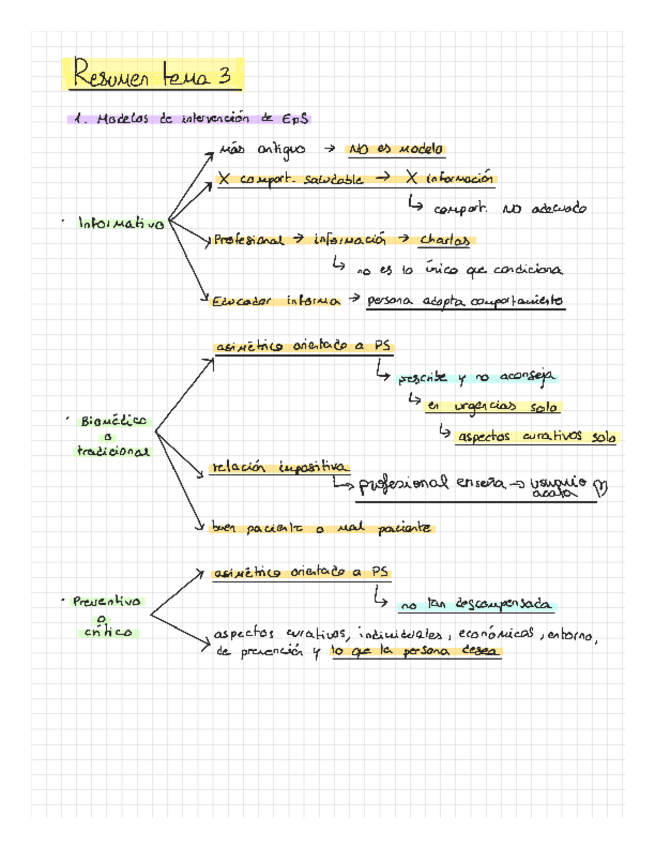 Resumen tema 3
1. Modelos de intervención de EpS
· Informativo
más antiguo → NO es modelo
X comport. saludable → X información
↳ comport. NO adecuado
Profesional → información → charlas
↳ no es lo único que condiciona
Educador informa → persona adopta comportamiento
· Biomédico
o
tradicional
asimétrico orientado a PS
↳ prescribe y no aconseja
↳ en urgencias solo
↳ aspectos curativos solo
relación impositiva
↳ profesional enseña → usuario
acata
buen paciente o mal paciente
· Preventivo
o
crítico
asimétrico orientado a PS
↳ no tan descompensada
aspectos curativos, individuales, económicos, entorno,
de prevención y lo que la persona desea